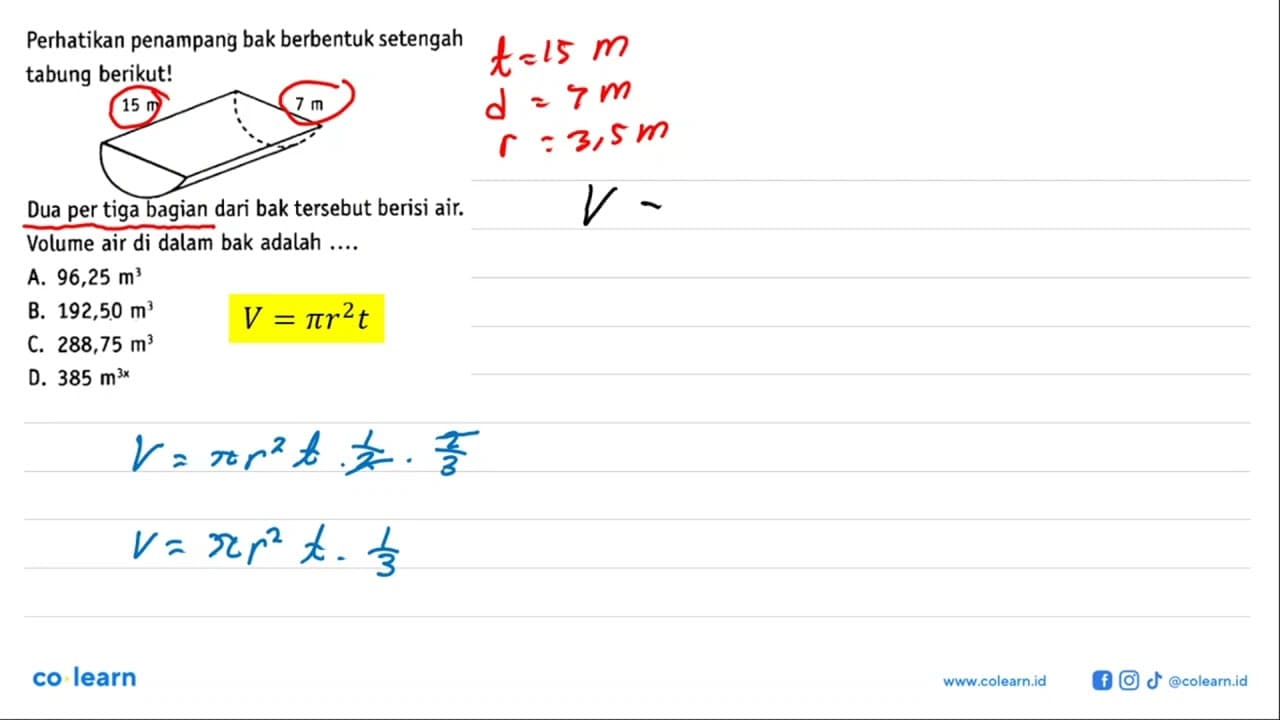 Perhatikan penampang bak berbentuk setengah
tabung berikut!
15 m
7 m
Dua per tiga bagian dari bak tersebut berisi air.
Volume air di dalam bak adalah ....
A. 96,25 m³
B. 192,50 m³
C. 288,75 m³
D. 385 m³ˣ
V = πr²t
t = 15 m
d = 7 m
r = 3,5 m
V -
V = πr² t . 1/2 . 2/3
V = πr² t . 1/3
co·learn
www.colearn.id
@colearn.id